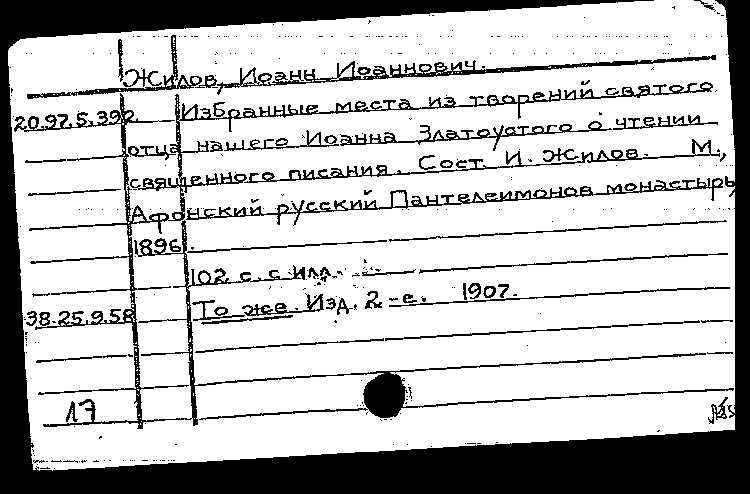 Жилов, Иоанн Иоаннович.
20.97.5.392. Избранные места из творений святого
отца нашего Иоанна Златоустого о чтении
священного писания. Сост. И. Жилов. М.,
Афонский русский Пантелеимонов монастырь,
1896.
102 с. с илл.
38.25.9.58 То же. Изд. 2-е. 1907.
17